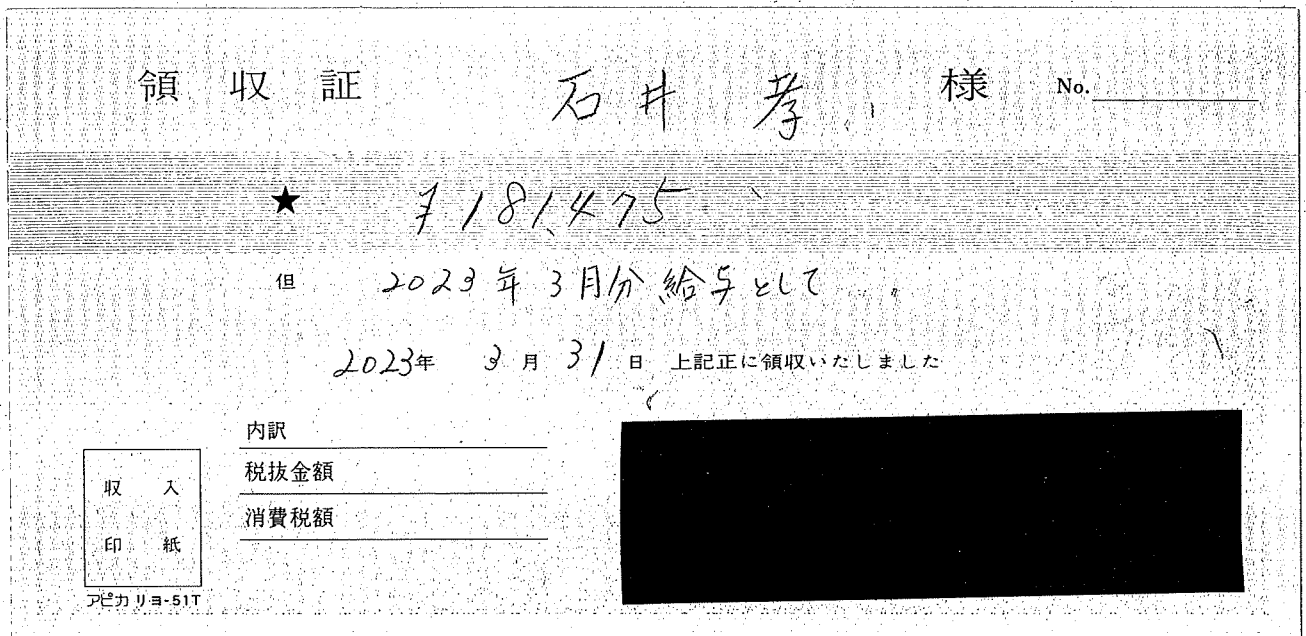 領収証 石井 孝 様 No.
★ ¥181,475
但 2023年3月分給与として
2023年 3月31日 上記正に領収いたしました
内訳
税抜金額
消費税額
収入
印紙
アピカ リヨ-51T